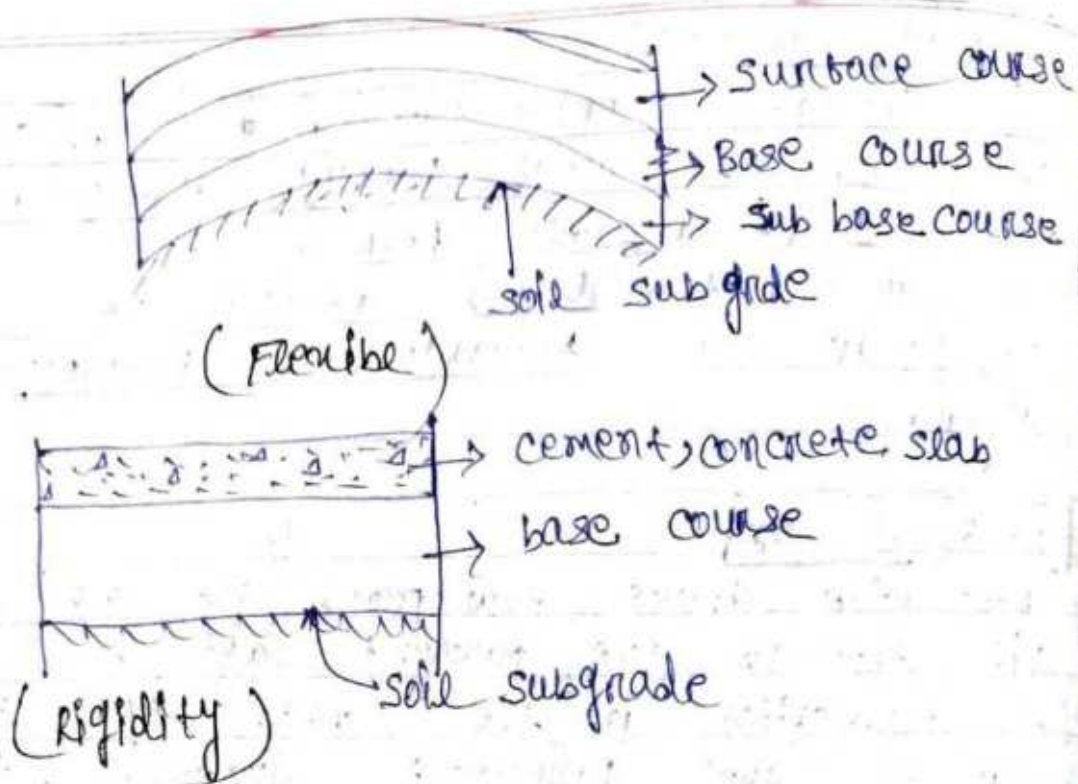 surbace course
Base course
sub base course
soil subgrde
(Flexibe)
cement, concrete slab
base course
soil subgrade
(Rigidity)